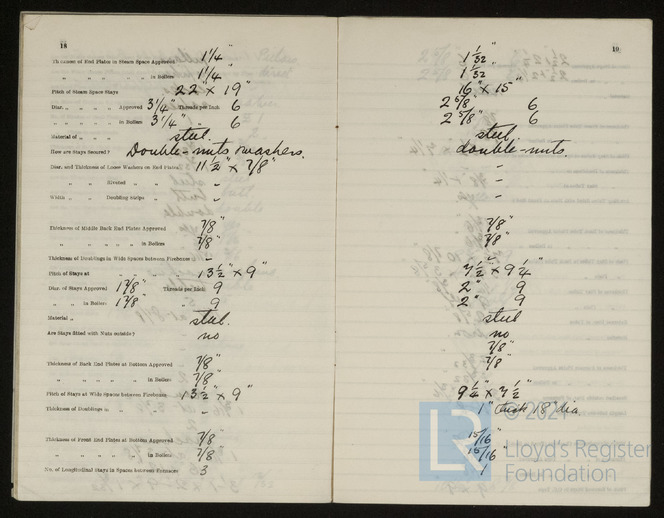 18
Thickness of End Plates in Steam Space Approved 1 1/4"
" " " " " in Boilers 1 1/4"
Pitch of Steam Space Stays 22" x 19"
Diar. " " " " Approved 3 1/4" Threads per Inch 6
" " " " in Boilers 3 1/4" " 6
Material of " " " steel.
How are Stays Secured? Double-nuts & washers.
Diar. and Thickness of Loose Washers on End Plates 11 1/2" x 7/8"
" " Riveted " " -
Width " " Doubling Strips " " -
Thickness of Middle Back End Plates Approved 7/8"
" " " " in Boilers 7/8"
Thickness of Doublings in Wide Spaces between Fireboxes -
Pitch of Stays at " " " " 13 1/2" x 9"
Diar. of Stays Approved 1 7/8" Threads per Inch 9
" " in Boilers 1 7/8" " 9
Material " steel.
Are Stays fitted with Nuts outside? no
Thickness of Back End Plates at Bottom Approved 7/8"
" " " " in Boilers 7/8"
Pitch of Stays at Wide Spaces between Fireboxes 13 1/2" x 9"
Thickness of Doublings in " " -
Thickness of Front End Plates at Bottom Approved 7/8"
" " " " in Boilers 7/8"
No. of Longitudinal Stays in Spaces between Furnaces 3
19
1 1/32"
1 1/32"
16" x 15"
2 5/8" 6
2 5/8" 6
steel.
double-nuts.
-
-
-
7/8"
7/8"
-
7 1/2" x 9 1/4"
2" 9
2" 9
steel
no
7/8"
7/8"
9 1/4" x 7 1/2"
1" thick 18" dia.
15/16"
15/16"
1
© 2021
LR
Lloyd's Register
Foundation